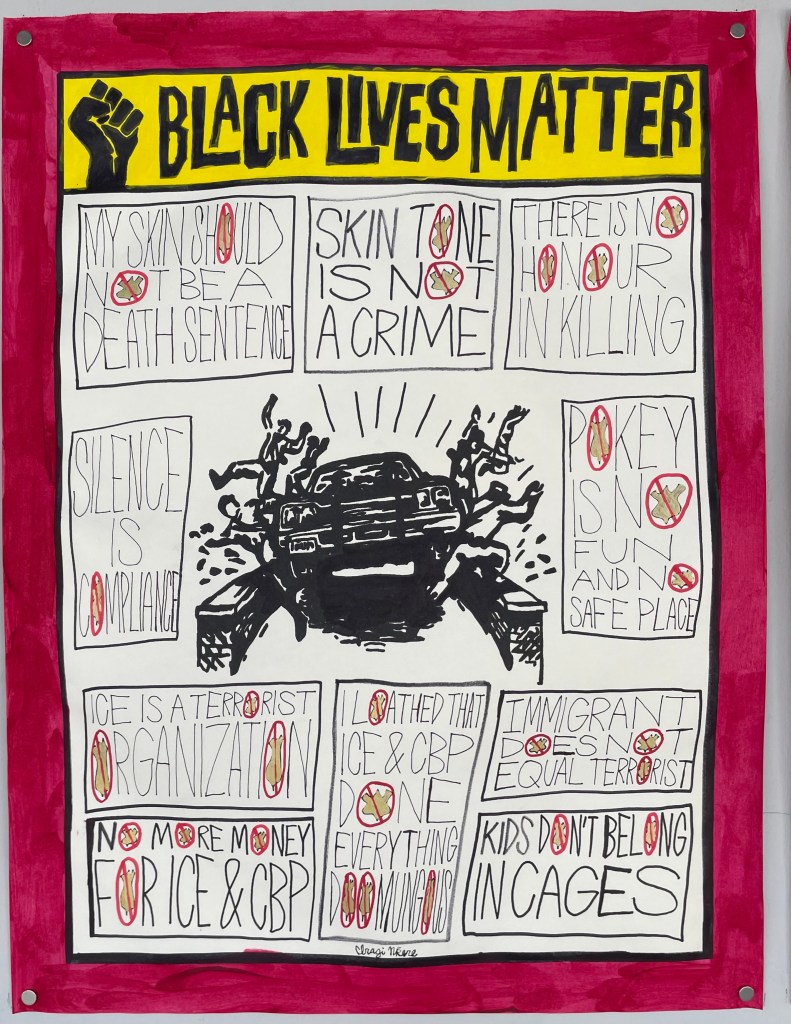 BLACK LIVES MATTER
MY SKIN SHOULD
NOT BE A
DEATH SENTENCE
SKIN TONE
IS NOT
A CRIME
THERE IS NO
HONOUR
IN KILLING
SILENCE
IS
COMPLIANCE
POKEY
IS NO
FUN
AND NO
SAFE PLACE
ICE IS A TERRORIST
ORGANIZATION
I LOATHED THAT
ICE & CBP
DONE
EVERYTHING
DOOMUNGOUS
IMMIGRANT
DOES NOT
EQUAL TERRORIST
NO MORE MONEY
FOR ICE & CBP
KIDS DON'T BELONG
IN CAGES